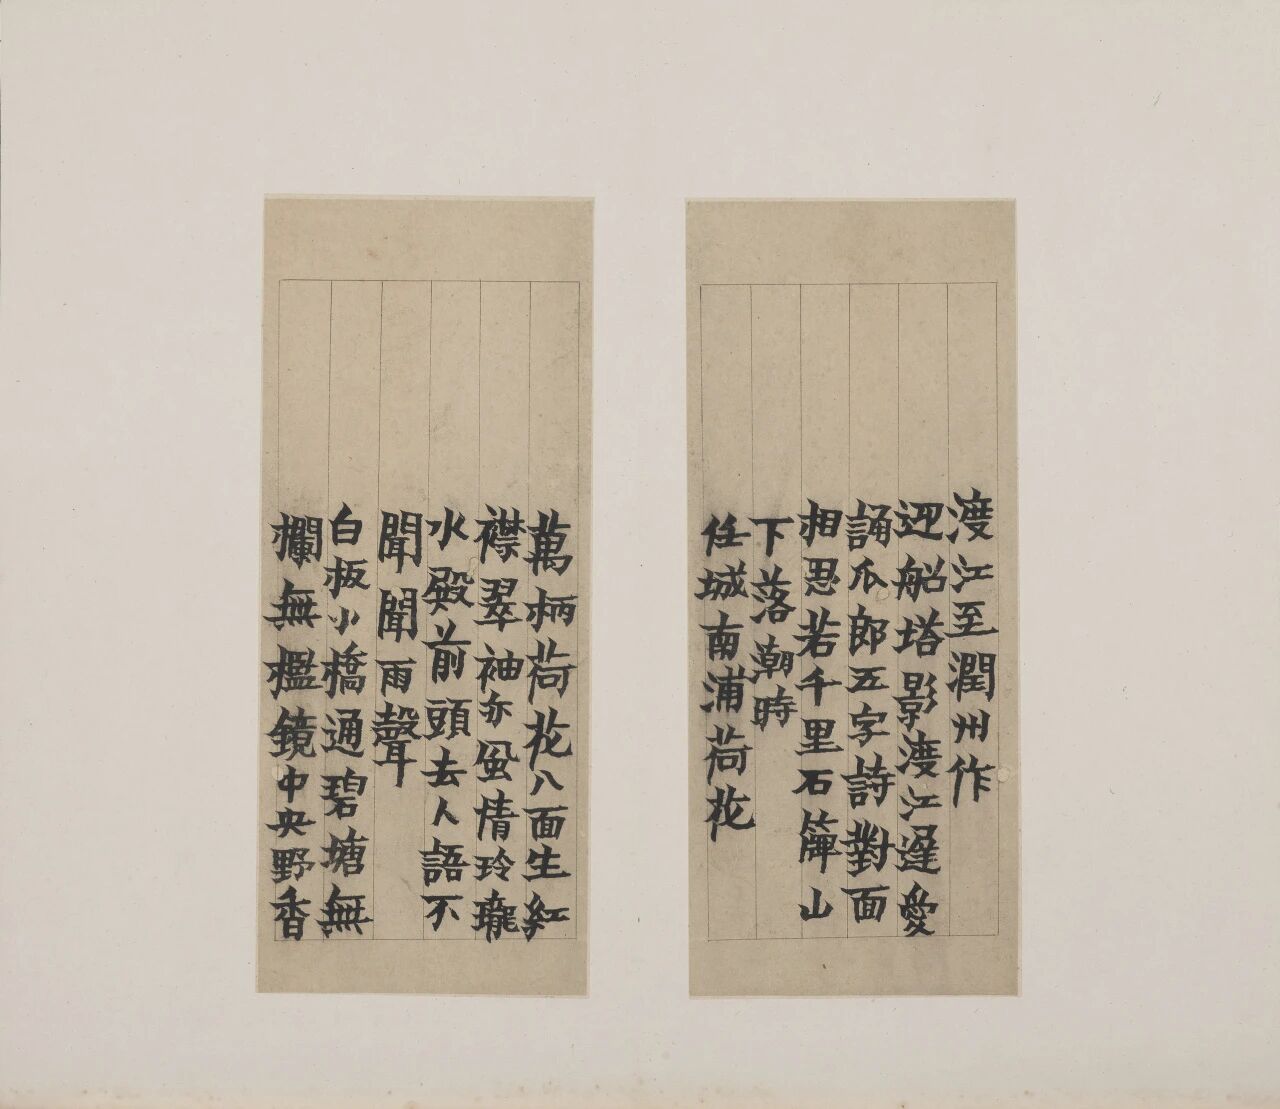 渡江至潤州作
迎船塔影渡江遲愛
誦瓜郎五字詩對面
相思若千里石簰山
下落潮時
任城南浦荷花
萬柄荷花八面生紅
襟翠袖亦風情玲瓏
水殿前頭去人語不
聞聞雨聲
白板小橋通碧塘無
欄無檻鏡中央野香